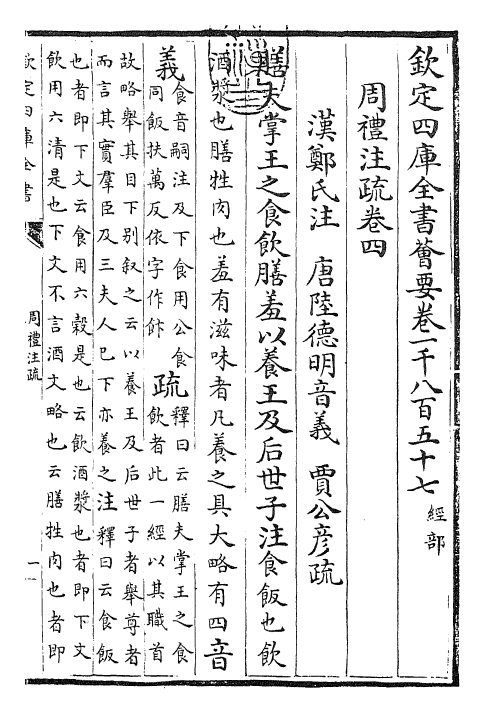 欽定四庫全書薈要卷一千八百五十七 經部
周禮注疏卷四
漢鄭氏注 唐陸德明音義 賈公彥疏
膳夫掌王之食飲膳羞以養王及后世子注食飯也飲
酒漿也膳牲肉也羞有滋味者凡養之具大略有四音
義食音嗣注及下食用公食
同飯扶萬反依字作飰疏釋曰云膳夫掌王之食
飲者此一經以其職首
故略舉其目下別叙之云以養王及后世子者舉尊者
而言其實羣臣及三夫人已下亦養之注釋曰云食飯
也者即下文云食用六穀是也云飲酒漿也者即下文
飲用六清是也下文不言酒文略也云膳牲肉也者即
欽定四庫全書
周禮注疏
一